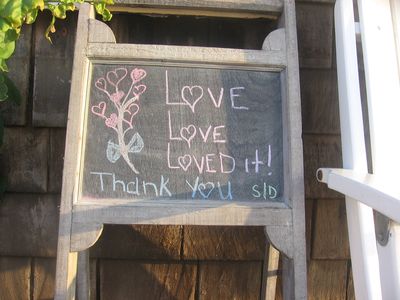 LOVE
LOVE
LOVED it!
Thank You S/D